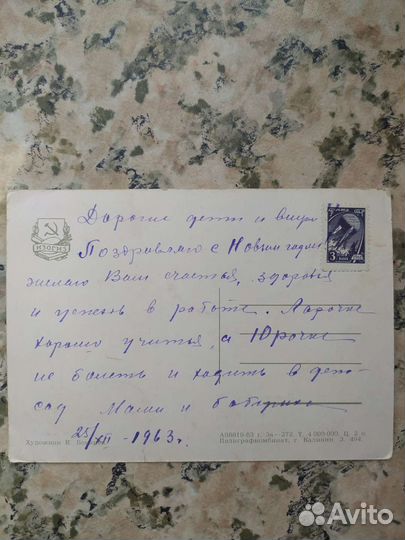 Дорогие дети и внуки
Поздравляю с Новым годом
желаю Вам счастья, здоровья
и успехов в работе. Ларочке
хорошо учиться, а Юрочке
не болеть и ходить в дет-
сад Мама и бабушка
23/XII - 1963 г.
ИЗОГИЗ
3
Художник
А00819-63 г. Зк - 272. Т. 4 000 000. Ц. 3 к.
Полиграфкомбинат, г. Калинин З. 494.
Avito